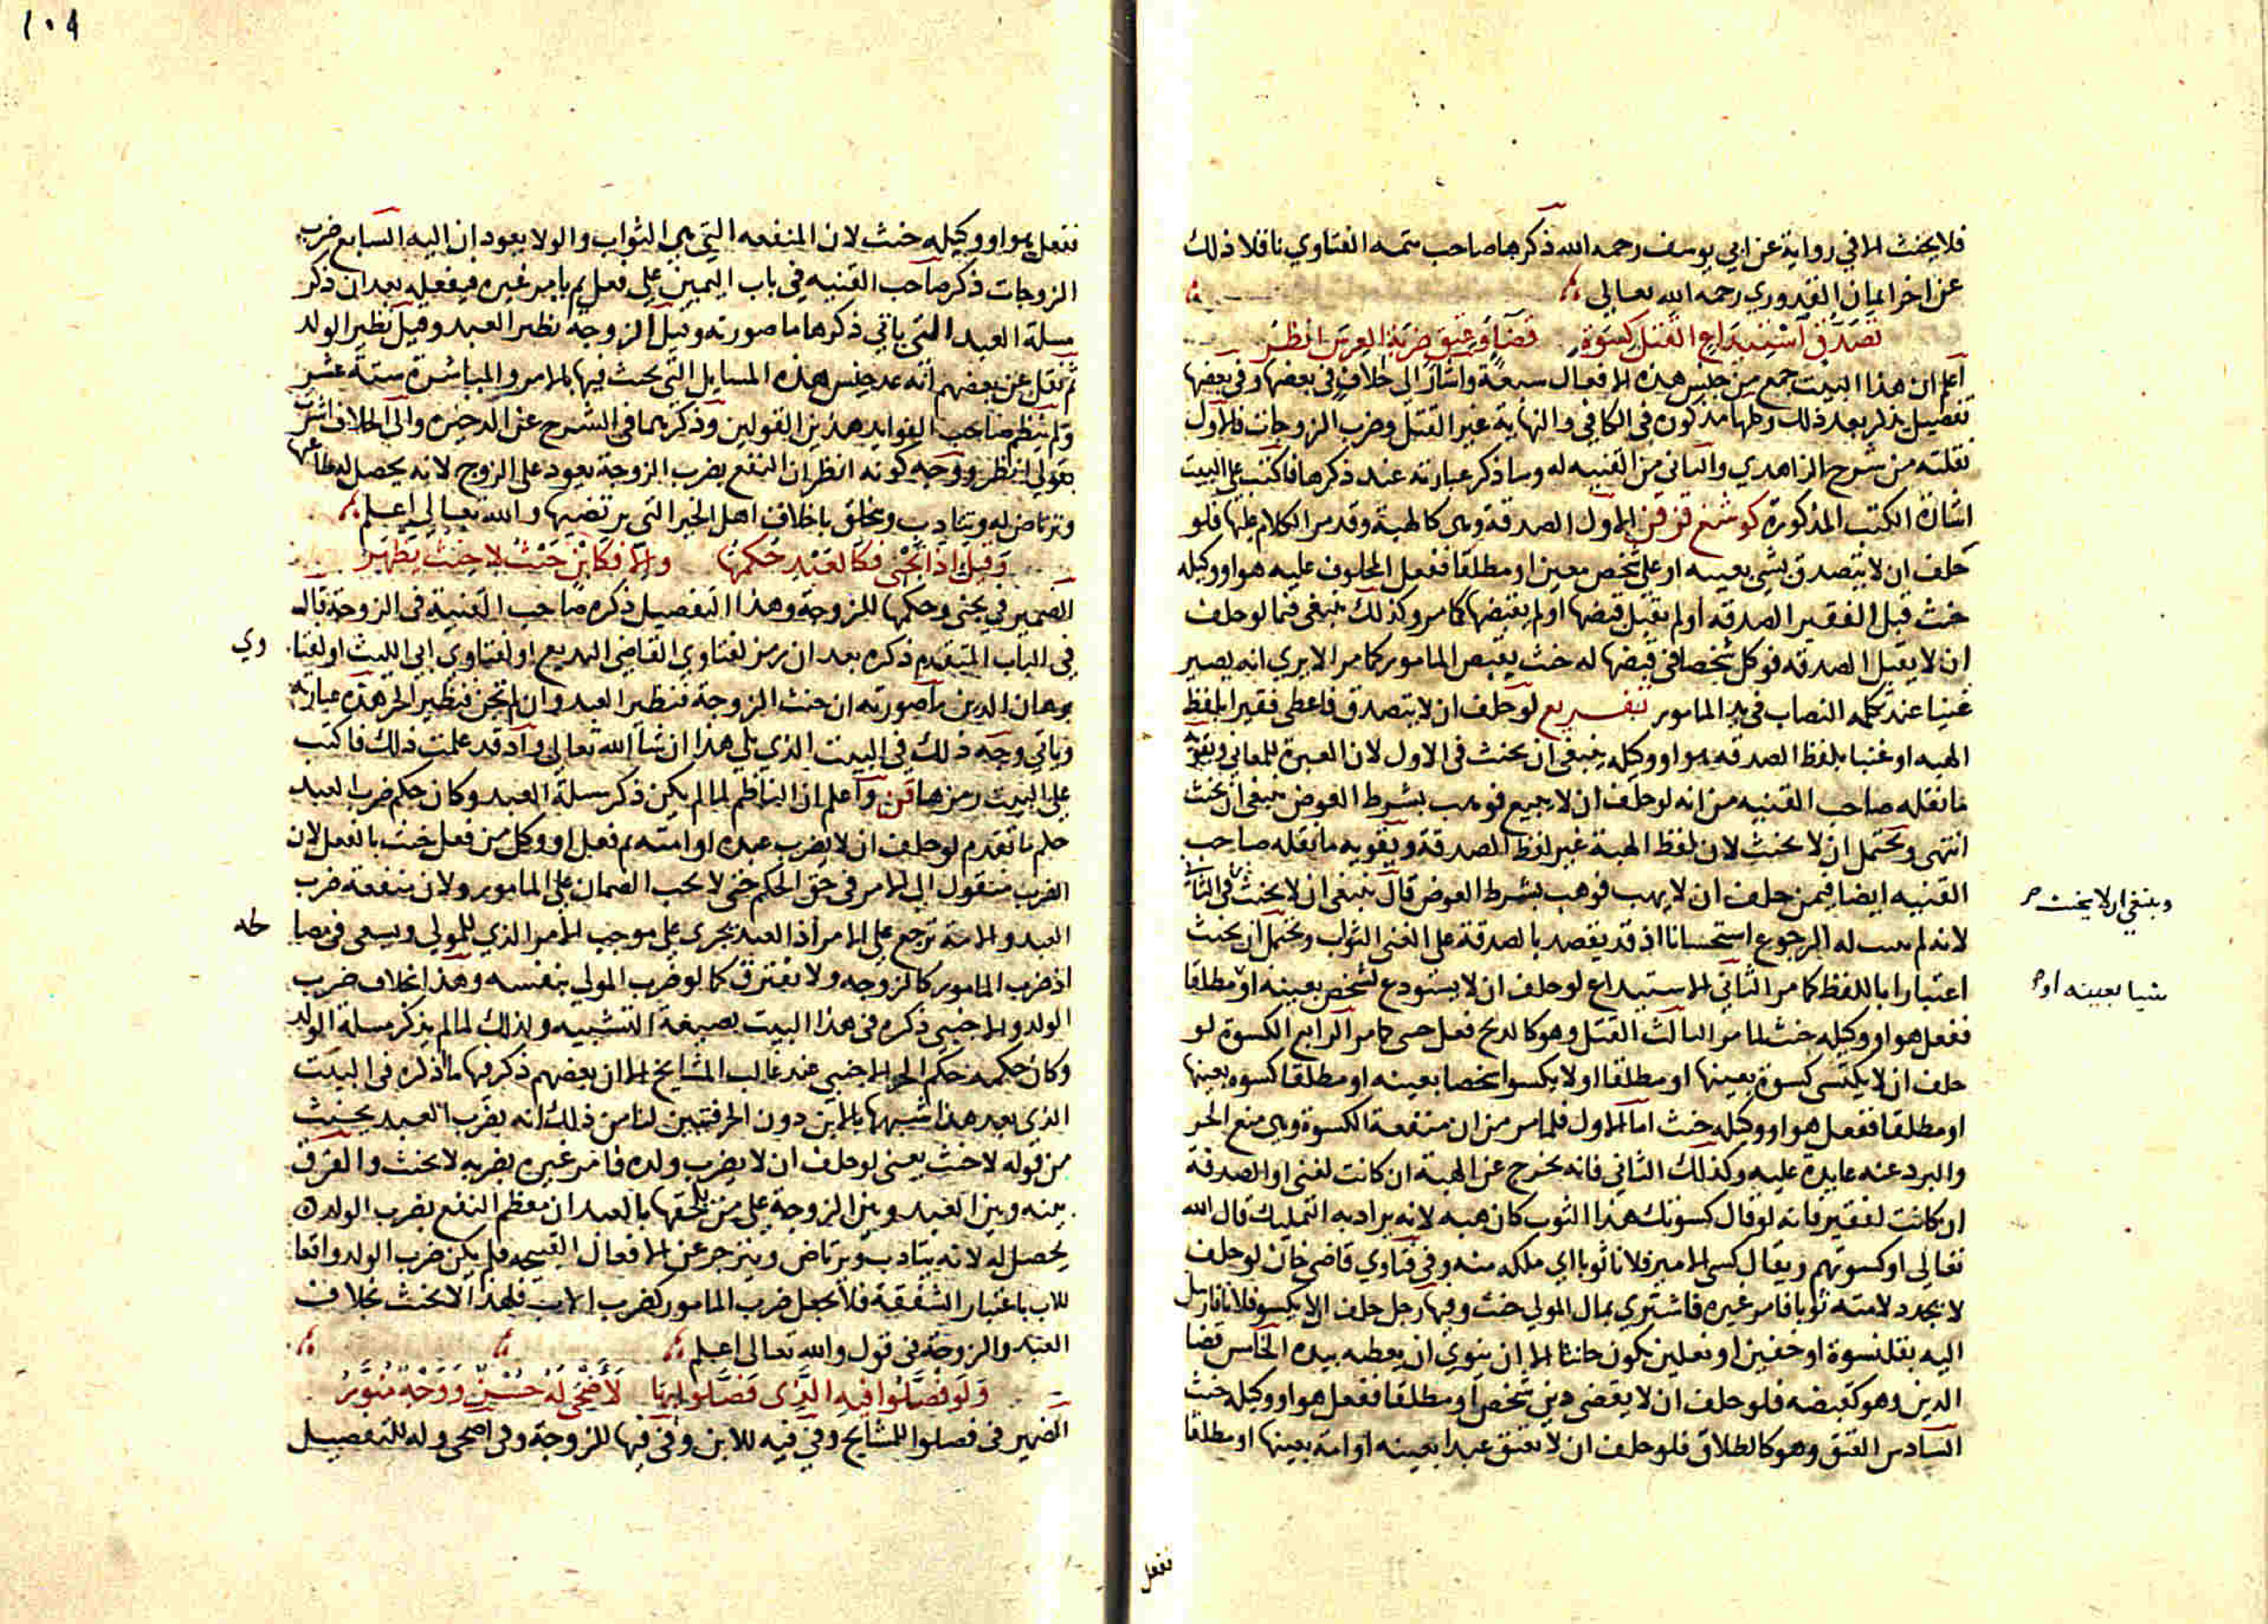 فلا يحنث الا في رواية عن ابي يوسف رحمه الله ذكرها صاحب تتمه الفتاوي ناقلا ذلك
عن اخر ايمان القدوري رحمه الله تعالى
تصدق استيداع القتل كسوة قضا وعتق ضربة العرس انظر
اعلم ان هذا البيت جمع من جنس هذه الافعال سبعة واشار الى خلاف في بعضها وفي بعضها
تفصيل يذكر بعد ذلك وكلها مذكوره في الكافي والنهاية غير القتل وضرب الزوجات فالاول
نقلته من شرح الزاهدي والثاني من القنيه له وساذكر عبارته عند ذكرها فاكتب على البيت
اشارة الكتب المذكورة الاول الصدقة وهي كالهبة وقد مر الكلام عليها فلو
حلف ان لا يتصدق بشي بعينه او على شخص معين او مطلقا ففعل المحلوف عليه هو او وكيله
حنث قبل الفقير الصدقه او لم يقبل قبضها او لم يقبضها كما مر وكذلك ينبغي فيما لو حلف
ان لا يقبل الصدقه فوكل شخصا في قبضها له حنث بقبض المامور كما مر الا يري انه يصير
غنيا عند تكمله النصاب في يد المامور تفسريع لو حلف ان لا يتصدق فاعطى فقيرا بلفظ
الهبه او غنيا بلفظ الصدقه هو او وكيله ينبغي ان يحنث في الاول لان العبرة للمعاني ويقويه
ما نقله صاحب القنيه من انه لو حلف ان لا يبيع فوهب بشرط العوض ينبغي ان يحنث
انتهى ويحتمل ان لا يحنث لان لفظ الهبة غير لفظ الصدقة ويقويه ما نقله صاحب
القنيه ايضا فيمن حلف ان لا يهب فوهب بشرط العوض قال ينبغي ان لا يحنث في الثاني
وينبغي ان لا يحنث
لانه لم يثبت له الرجوع استحسانا اذ قد يقصد بالصدقة على الغني الثواب ويحتمل ان يحنث
اعتبارا باللفظ كما مر الثاني الاستيداع لو حلف ان لا يستودع لشخص بعينه او مطلقا
شيا بعينه او
ففعل هو او وكيله حنث لما مر الثالث القتل وهو كالذبح فعل حسي كما مر الرابع الكسوة لو
حلف ان لا يكتسي كسوة بعينها او مطلقا او لا يكسوا شخصا بعينه او مطلقا كسوه بعينها
او مطلقا ففعل هو او وكيله حنث اما الاول فلما مر من ان منفعة الكسوة وهي منع الحر
والبرد عنه عايدة عليه وكذلك الثاني فانه يخرج عن الهبة ان كانت لغني او الصدقة
ان كانت لفقير فانه لو قال كسوتك هذا الثوب كان هبه لانه يراد به التمليك قال الله
تعالى او كسوتهم ويقال كسى الامير فلانا ثوبا اي ملكه منه وفي فتاوي قاضي خان لو حلف
لا يجدد لامته ثوبا فامر غيره فاشترى بمال المولي حنث وفيها رجل حلف الا يكسو فلانا فارسل
اليه بقلنسوة او خفين او نعلين يكون حانثا الا ان ينوي ان يعطيه بيده الخامس قضا
الدين وهو كقبضه فلو حلف ان لا يقضى دين شخص او مطلقا ففعل هو او وكيله حنث
السادس العتق وهو كالطلاق فلو حلف ان لا يعتق عبدا بعينه او امة بعينها او مطلقا
نفعل
١٠٩
ففعل هو او وكيله حنث لان المنفعه التي هي الثواب والولا يعودان اليه السابع ضرب
الزوجات ذكر صاحب القنيه في باب اليمين على فعل ثم يامر غيره فيفعله بعد ان ذكر
مسلة العبد التي ياتي ذكرها ما صورته وقيل الزوجة نظير العبد وقيل نظير الولد
ثم نقل عن بعضهم انه عد جنس هذه المسايل التي يحنث فيها بالامر والمباشرة ستة عشر
ولم ينظم صاحب الفوايد هذين القولين وذكرهما في الشرح عن الذخيره والى الخلاف اشرت
بقولي انظر ووجه كونه انظر ان النفع بضرب الزوجة يعود على الزوج لانه يحصل له طاعتها
وترتاض له وتتادب وتتخلق باخلاق اهل الخير التي يرتضيها والله تعالى اعلم
وقيل اذا تجني فكالعبد حكمها والا فكابن حنث لا حنث يظهر
الضمير في تجني وحكمها للزوجة وهذا التفصيل ذكره صاحب القنية في الزوجة قاله
في الباب المتقدم ذكره بعد ان رمز لفتاوي القاضي البديع او لفتاوي ابي الليث او لفتا وي
برهان الدين ما صورته ان جنت الزوجة فنظير العبد وان لم تجن فنظير الحر هذه عبارته
وياتي وجه ذلك في البيت الذي يلي هذا ان شا الله تعالى واذ قد علمت ذلك فاكتب
على البيت رمزها واعلم ان الناظم لما لم يكن ذكر مسلة العبد وكان حكم ضرب العبد
حكم ما تقدم لو حلف ان لا يضرب عبده او امته ثم فعل او وكل من فعل حنث بالفعل لان
الضرب منقول الى الامر في حق الحكم حتى لا يجب الضمان على المامور ولان منفعة ضرب
العبد والامة ترجع على الامر اذ العبد يجري على موجب الامر الذي للمولي ويسعى في مصا لحه
اذ ضرب المامور كالزوجه ولا يفترق كما لو ضرب المولي بنفسه وهذا بخلاف ضرب
الولد والاجنبي ذكره في هذا البيت بصيغة التشبيه ولذلك لما لم يذكر مسلة الولد
وكان حكمه حكم الحر الاجنبي عند غالب المشايخ الا ان بعضهم ذكر فيها ما اذكره في البيت
الذي بعد هذا شبهها بالابن دون الحر فتبين لنا من ذلك انه بضرب العبد يحنث
من قوله لا حنث يعني لو حلف ان لا يضرب ولده فامر غيره بضربه لا يحنث والفرق
بينه وبين العبد وبين الزوجة على من يلحقها بالعبد ان معظم النفع بضرب الولد
يحصل له لانه يتادب ويرتاض وينزجر عن الافعال القبيحه فلم يكن ضرب الولد واقعا
للاب باعتبار الشفقة فلا يجعل ضرب المامور كضرب الاب فلهذا لا يحنث بخلاف
العبد والزوجة في قول والله تعالى اعلم
ولو فصلوا فيه الذي فصلوا بها لاضحى له حسن ووجه منور
الضمير في فصلوا للمشايخ وفي فيه للابن وفي فيها للزوجة وفي اضحى وله للتفصيل